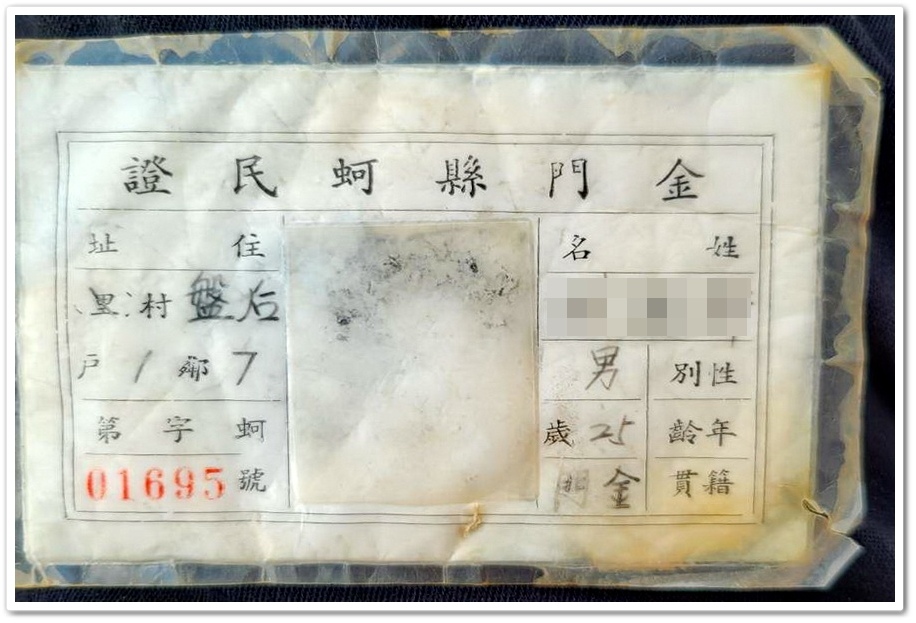 金門縣蚵民證
姓名
性別 男
年齡 25歲
籍貫 金門
住址
后盤村里
7鄰1戶
蚵字第
號 01695